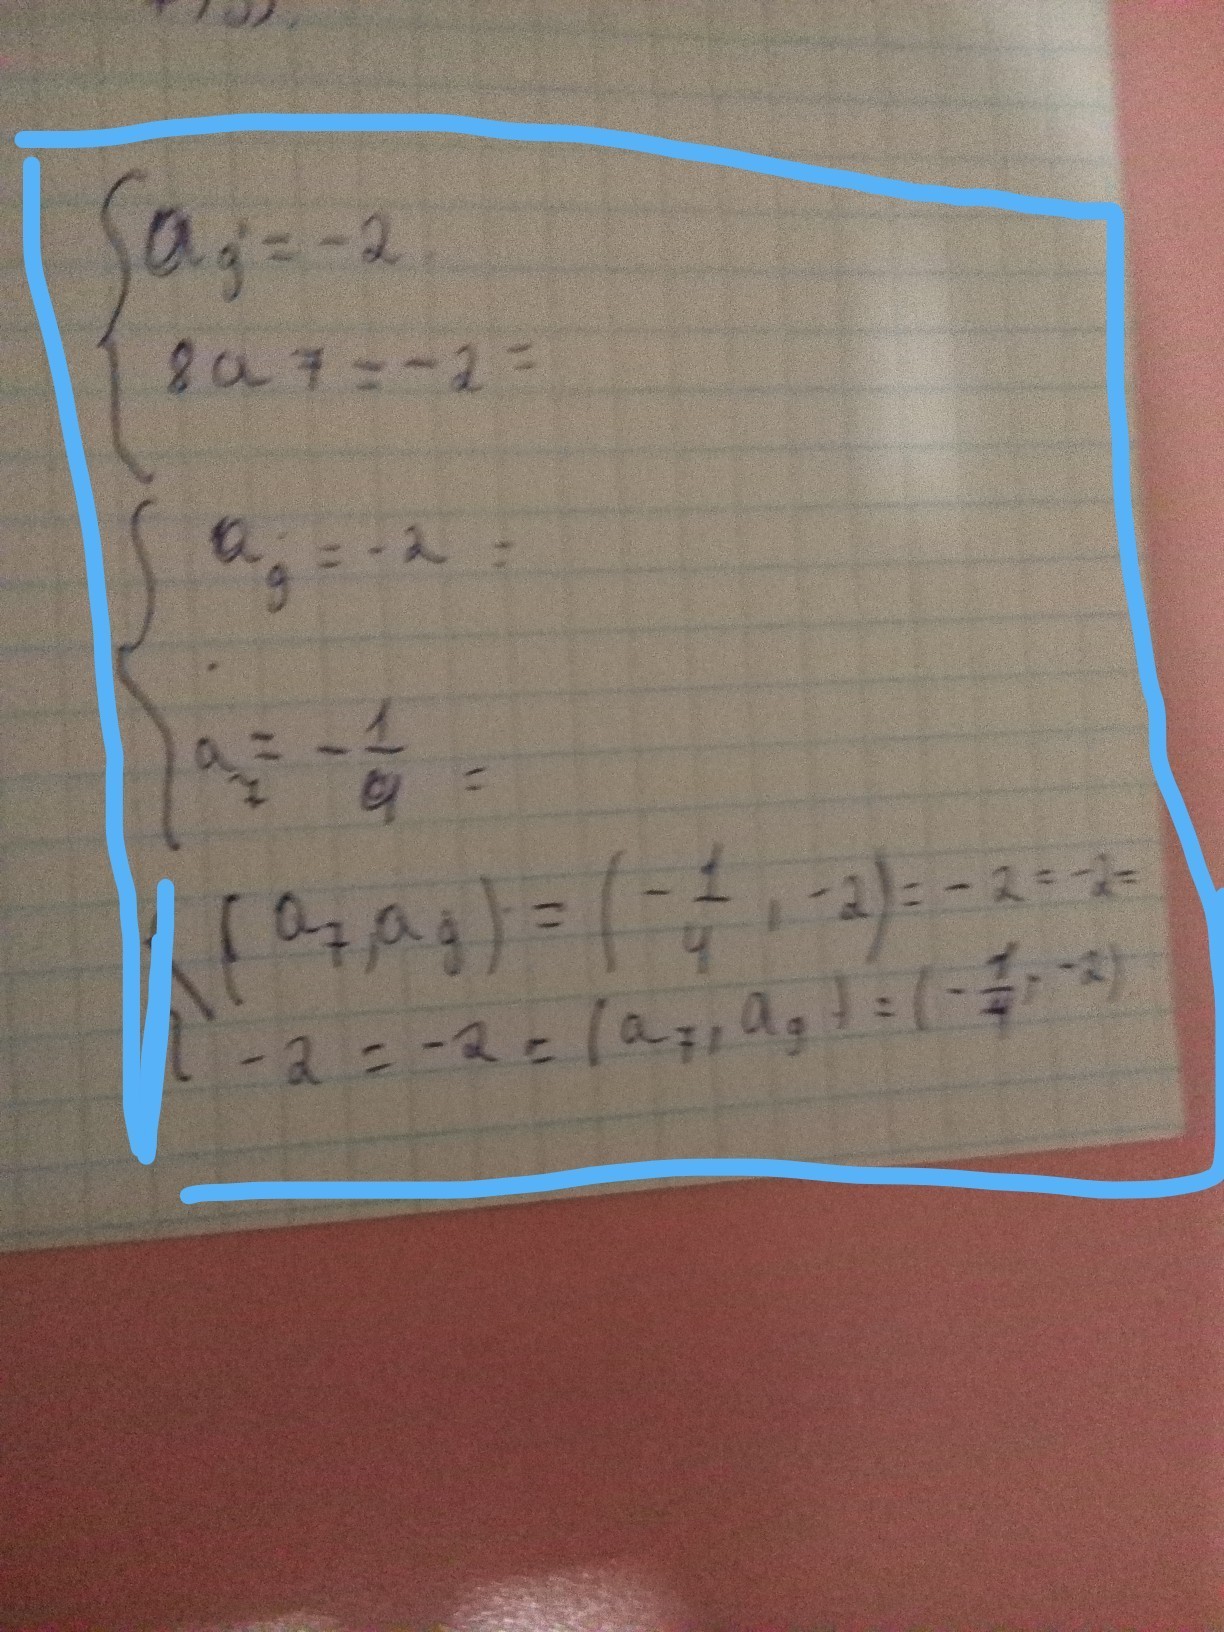 a₉ = -2
8a7 = -2 =
a₉ = -2 =
a₇ = -1/4 =
(a₇, a₉) = (-1/4, -2) = -2 = -2 =
-2 = -2 = (a₇, a₉) = (-1/4, -2)